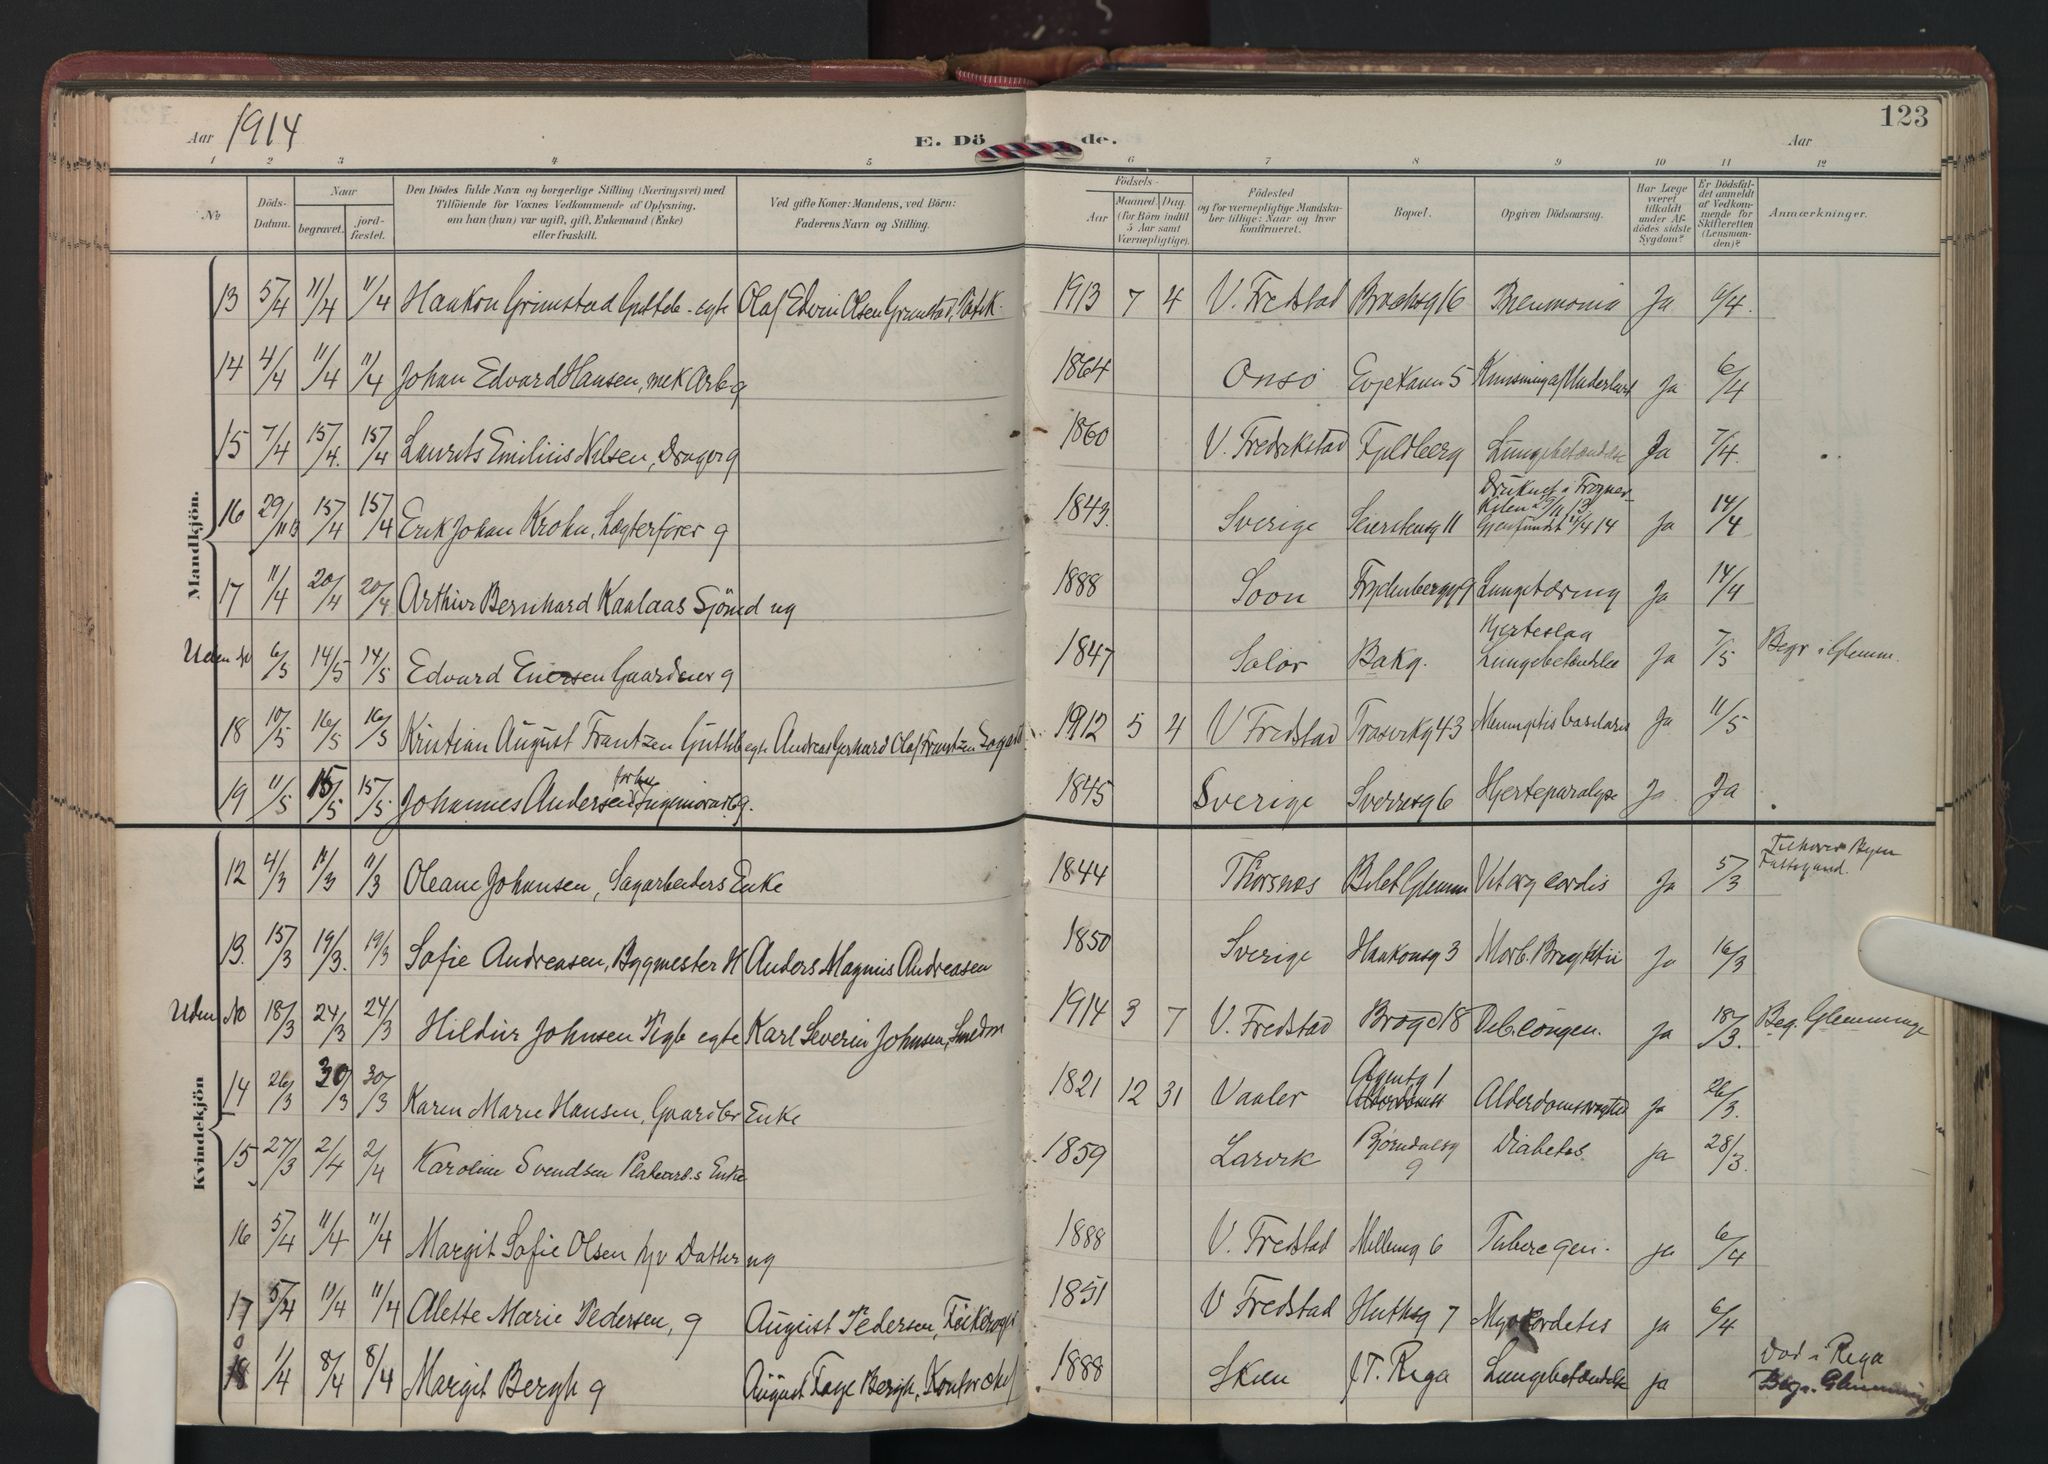 Aar 1914 E. Dö de. Aar 123
1 2 3 4 5 6 7 8 9 10 11 12
No Döds-Datum. Naar begravet. jordfæstet. Den Dödes fulde Navn og borgerlige Stilling (Næringsvei) med Tilföiende for Voxnes Vedkommende af Oplysning, om han (hun) var ugift, gift, Enkemand (Enke) eller fraskilt. Ved gifte Koner: Mandens, ved Börn: Faderens Navn og Stilling. Födsels- Aar Maaned. Dag. (for Börn indtil 5 Aar samt Værnepligtige). Födested og for værnepligtige Mandskaber tillige: Naar og hvor konfirmeret. Bopæl. Opgiven Dödsaarsag. Har Læge været tilkaldt under Afdödes sidste Sygdom? Er Dödsfaldet anmeldt af Vedkommende for Skifteretten (Lensmanden)? Anmærkninger.
Mandkjön.
13 5/4 11/4 11/4 Haakon Grimstad Guttb. egte Olaf Edvin Olsen Grimstad, 1913 7 4 V. Fredstad Brochsg 16 Pneumonia Ja 6/4.
14 4/4 11/4 11/4 Johan Edvard Hansen, mek Arb g 1864 Onsö Evjekaun 5 Knusning af Underlivet Ja 6/4
15 7/4 15/4. 15/4 Laurits Emilius Nilsen, Drager g 1860 V. Fredrikstad Fjeldberg Lungebetændelse Ja 7/4.
16 29/11 13 15/4 15/4 Erik Johan Krohn, Lægterförer g 1843. Sverige Seierstensg 11 Druknet i Frognerkilen 29/11 13 Gjenfundet 11/4 14 Ja 14/4
17 11/4 20/4 20/4 Arthur Bernhard Kaalaas Sjömd ug 1888 Soon Frydenbergg 9 Lungetæring Ja 14/4
Uden No 6/5 14/5 14/5 Edvard Enersen Gaardeier g 1847 Solör Bakg. Hjerteslag Lungebetændelse Ja 7/5 Begr i Glemm.
18 10/5 16/5 16/5 Kristian August Frantzen Guttb egte Andreas Gerhard Olaf Frantzen 1912 5 4 V Fredstad Trosvikg 43 Meningitis basilaris Ja 11/5
19 11/5 15/5 15/5 Johannes Andersen forhv g. 1845 Sverige Sverresg 6 Hjerteparalyse Ja Ja
Kvindekjön
12 4/3 11/3 11/3 Oleane Johansen, Sagarbeiders Enke 1844 Thorsnes Bilet Glemm Vit org cordis Ja 5/3 Tilhörer Byen
13. 15/3 19/3. 19/3 Sofie Andreasen, Bygmester H Anders Magnus Andreasen 1850 Sverige Haakonsg 3 Morb. Brightii Ja 16/3
Uden No 18/3 24/3 24/3 Hildur Johnsen Pigb egte Karl Severin Johnsen, Smedm 1914 3 7 V. Fredstad Broge 18 Deb. congen. Ja 18/3. Beg. Glemminge
14 26/3 30/3 30/3 Karen Marie Hansen, Gaardbr Enke 1821 12 31 Vaaler Agentg 1 Alderdomssvaghed Ja 26/3.
15 27/3 2/4 2/4 Karoline Svendsen Enke 1859 Larvik Björndalsg 9 Diabetes Ja 28/3.
16 5/4 11/4 11/4 Margit Sofie Olsen hjv Datter ug 1888 V. Fredstad Mellemg 6 Tuberc gen. ja 6/4
17 5/4 11/4 11/4 Alette Marie Pedersen, g August Pedersen, 1851 V Fredstad Huthsg 7 Myocordetis ja 6/4
18 1/4 8/4 8/4 Margit Bergh g August Faye Bergh, Kontorchef 1888 Skien f.T. Riga Lungebetændelse ja Död i Riga Begr. Glemminge